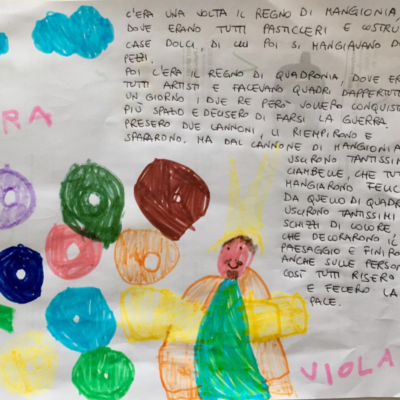 C'ERA UNA VOLTA IL REGNO DI MANGIONIA,
DOVE ERANO TUTTI PASTICCERI E COSTRU
CASE DOLCI, DI CUI POI SI MANGIAVANO DE
PEZZI.
POI C'ERA IL REGNO DI QUADRONIA, DOVE ER
TUTTI ARTISTI E FACEVANO QUADRI DAPPERTUT
UN GIORNO I DUE RE PERÒ VOLLERO CONQUIST
PIÙ SPAZIO E DECISERO DI FARSI LA GUERRA.
PRESERO DUE CANNONI, LI RIEMPIRONO E
SPARARONO. MA DAL CANNONE DI MANGIONIA
USCIRONO TANTISSIM
CIAMBELLE, CHE TUT
MANGIARONO FELIC
DA QUELLO DI QUADR
USCIRONO TANTISSIMI
SCHIZZI DI COLORE
CHE DECORARONO IL
PAESAGGIO E FINIRO
ANCHE SULLE PERSON
COSÌ TUTTI RISERO
E FECERO LA
PACE.
RA
VIOLA